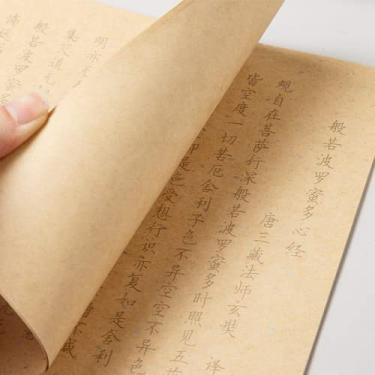 般若波罗蜜多心经
唐三藏法师玄奘 译
观自在菩萨行深般若波罗蜜多时照见五
皆空度一切苦厄舍利子色不异空空不异色
即是色受想行识亦复如是舍利
不减
明亦无
集灭道无
般若波罗